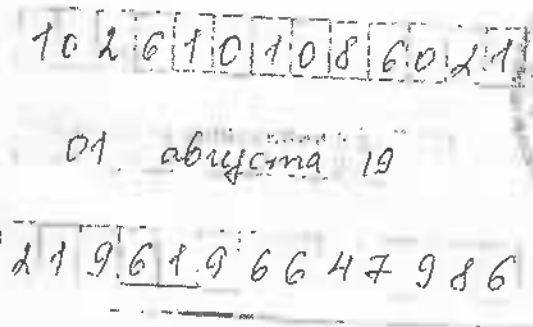 1026101086021
01 августа 19
2196196647986